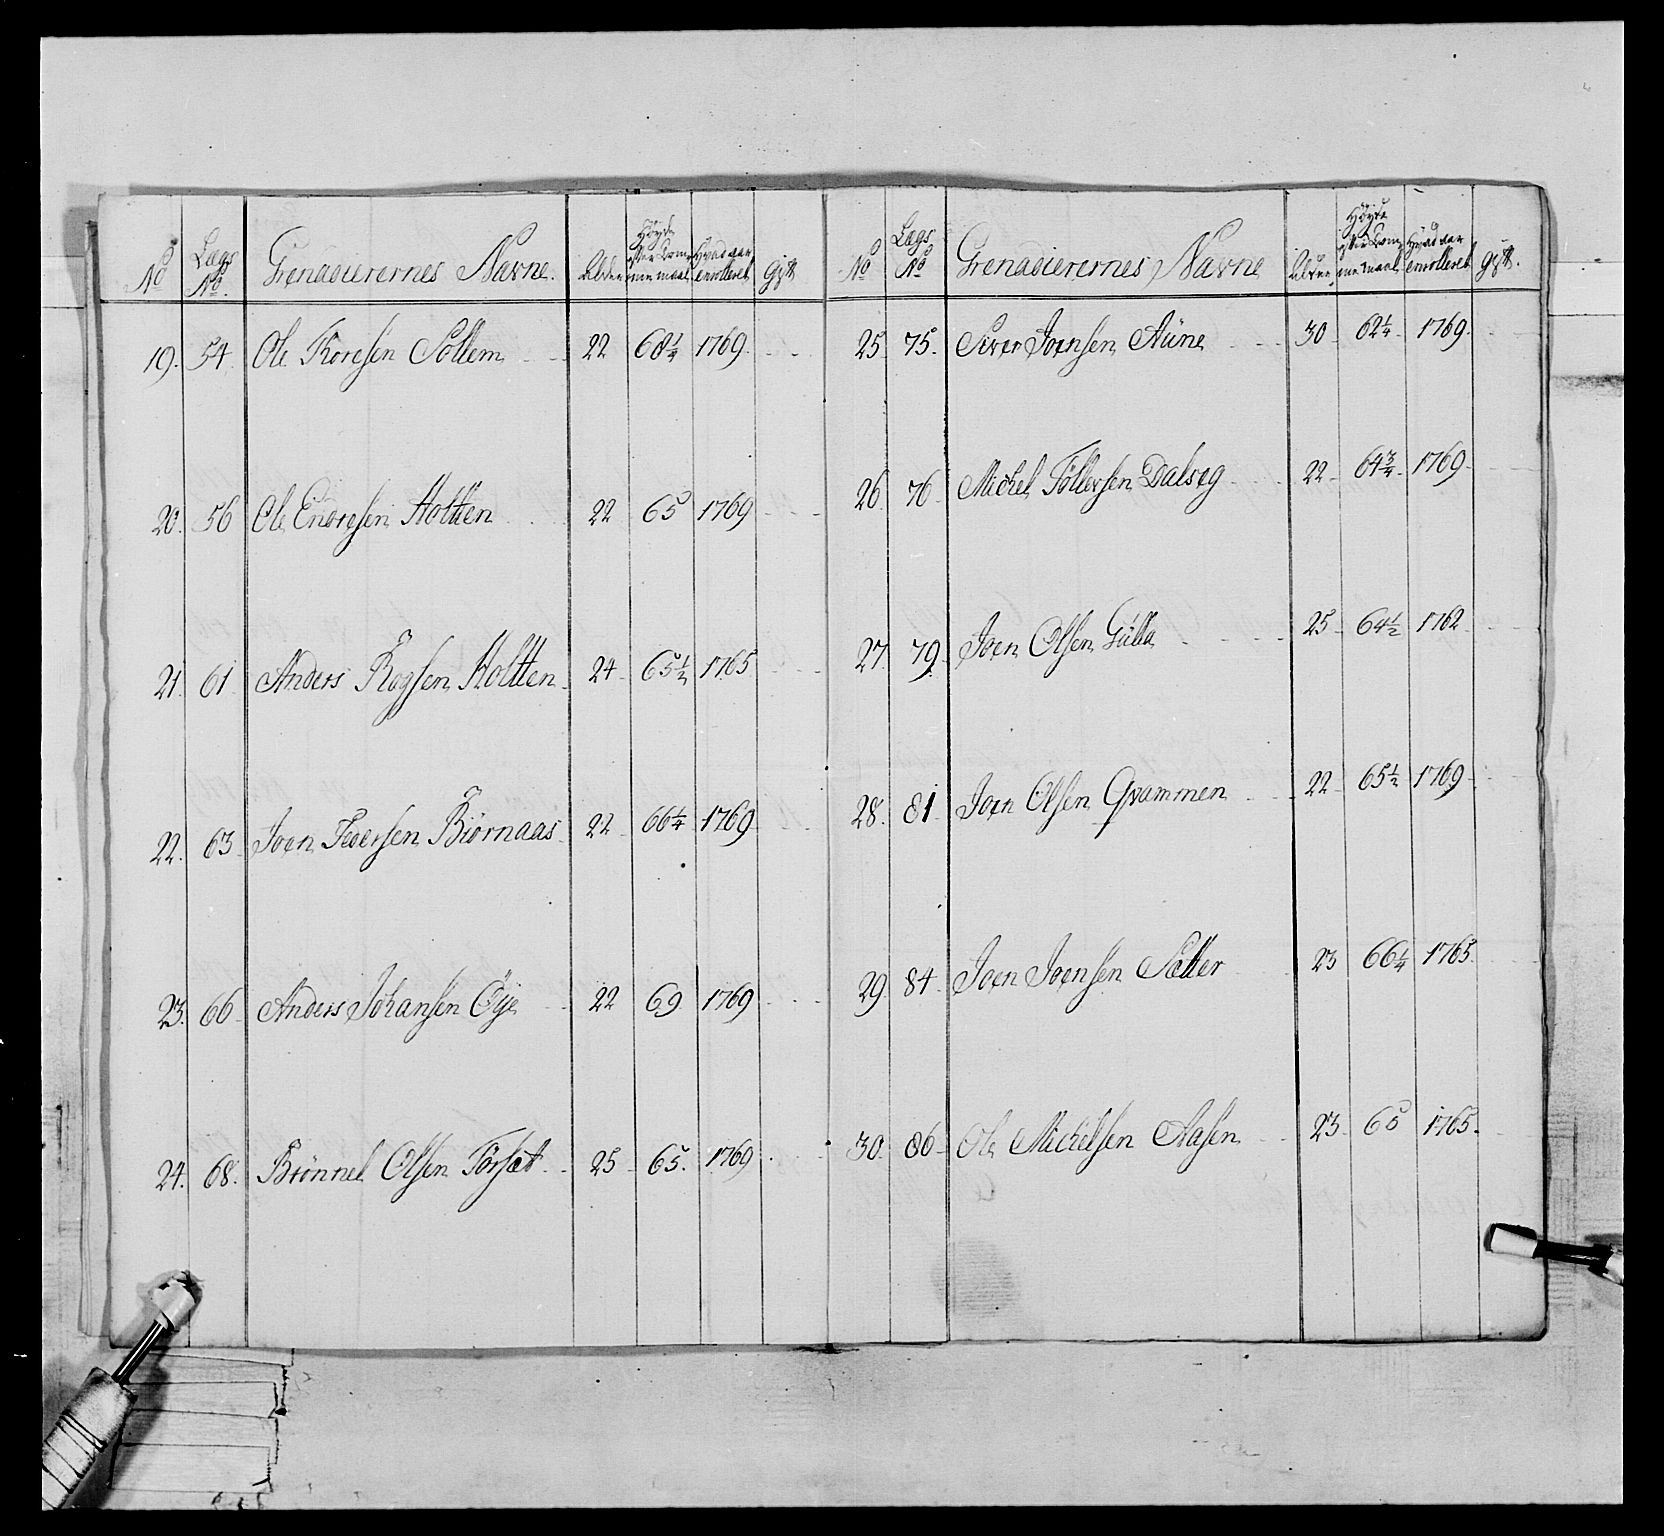 No Lægs No. Grenadierernes Navne. Alder Høyde efter Tommemaal Hvad aar enrolleret Gift
19. 54 Ole Thoresen Sollem 22 68¼ 1769
20. 56 Ole Endresen Holtten 22 65 1769
21. 61 Anders Roysen Holtten 24 65½ 1765
22. 63 Joen Pedersen Biørnaas 22 66¼ 1769
23. 66 Anders Johansen Øye 22 69 1769
24. 68. Brønnel Olsen Førsæt 25 65. 1769
No Lægs No Grenadierernes Navne Alder Høyde efter Tommemaal Hvad aar enrolleret gift.
25 75. Siver Joensen Aüne 30 62¼ 1769.
26 76 Michel Tøllefsen Dalseg 22 64¾ 1769
27. 79. Joen Olsen Gülla 25 64½ 1762
28. 81 Joen Olsen Qvammen 22 65½ 1769
29. 84 Joen Joensen Sætter 23 66¼ 1765
30. 86 Ole Michelsen Aasen 23 65 1765.